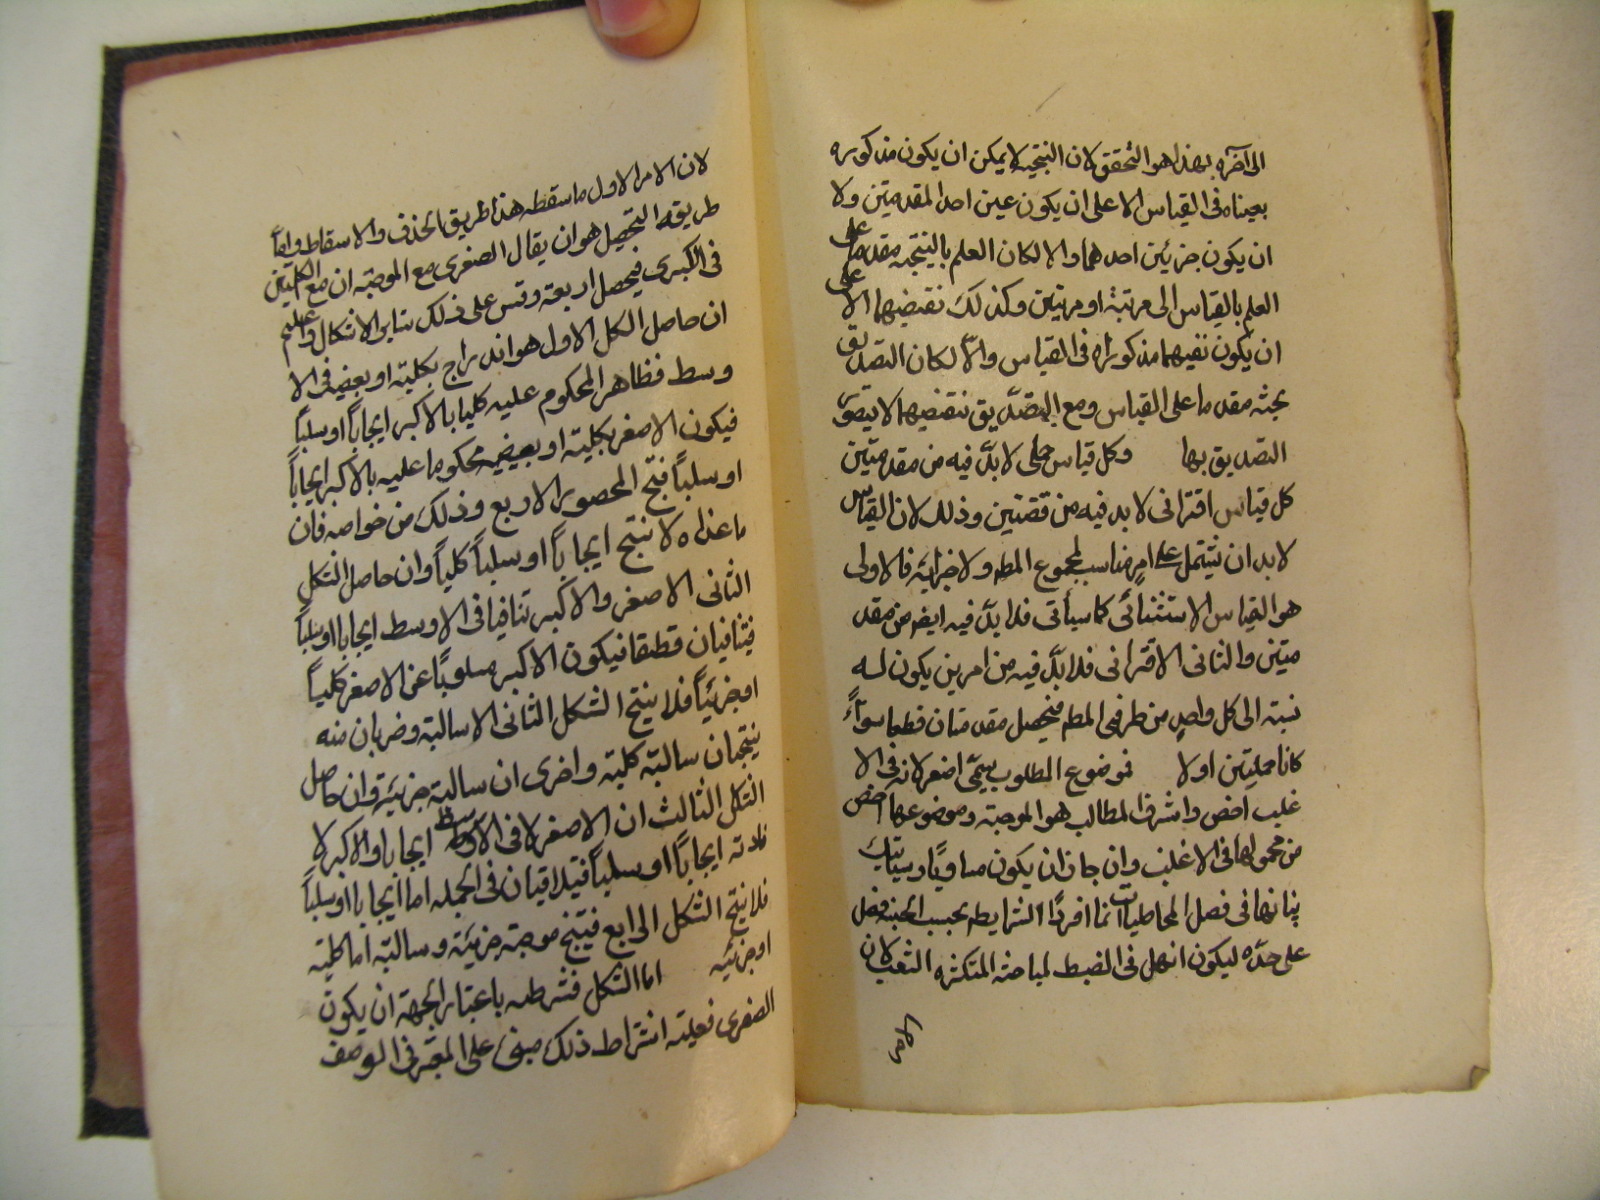 الى آخره بهذا هو التحقق لان النتيجة لا يمكن ان يكون مذكوره
بعيناه فى القياس الا على ان يكون عين احد المقدمتين ولا
ان يكون جزئين احدهما والا لكان العلم بالنتيجة مقدما على
العلم بالقياس الى مرتبة او مرتبتين وكذلك نقيضيهما الا على
ان يكون نفيهما مذكوراه فى القياس والّا لكان التصديق
مقدما على القياس ومع التصديق بنقيضيهما لا يتصوّ
التصديق بها وكل قياس حملى لا بدّ فيه من مقدمتين
كل قياس اقترانى لا بد فيه من قضتين وذلك لان القياس
لا بد ان يشتمل على امر مناسب لمجموع المط ولاجزائه فالاولى
هو القياس الاستثنائى كما سيأتى فلا بدّ فيه ايض من مقد
متين والثانى الاقترانى فلا بدّ فيه من امرين يكون له
نسبة الى كل واحد من طرفى المط فيحصل مقدمتان قطعا سواءً
كانا حمليتين اولا فموضوع المطلوب يسمّى اصغر لانه فى الا
غلب اخص واشرف المطالب هو الموجبة وموضوعها اخص
من محمولها فى الاغلب وان جاز ان يكون مساويًا وسياتيك
بيانها فى فصل المختلطات انما افردّ الشرايط بحسب الجهة فصل
على حدّه ليكون اسهل فى الضبط لمباحثه المتكثره التعب لان
الامر
لان الامر الاول ما سقطه هذا طريق الحذف والاسقاط واما
طريقه التحصيل هو ان يقال الصغرى مع الموجبة ان مع الكلتين
فى الكبرى فيحصل اربعة وقس على ذلك سائر الاشكال واعلم
ان حاصل الكل الاول هو اندراج بكليته او بعضه فى الا
وسط فظاهر المحكوم عليه كليا بالاكبر ايجاباً او سلباً
فيكون الاصغر بكليته او بعضه محكوما عليه بالاكبر ايجاباً
او سلباً فتنج المحصور الاربع وذلك من خواصه فان
ما عداه لا تنتج ايجاباً او سلباً كلياً وان حاصل الشكل
الثانى الاصغر والاكبر تنافيا فى الاوسط ايجابا او سلباً
فيتنافيان قطعا فيكون الاكبر مسلوباً عن الاصغر كلياً
او جزئياً فلا ينتج الشكل الثانى الا سالبة وضربان منه
ينتجان سالبة كلية واخرى ان سالبة جزئية وان حاصل
الشكل الثالث ان الاصغر لاقى الاوسط ايجابا والاكبر لا
قاته ايجاباً او سلباً فيتلاقيان فى الجمله اما ايجابا او سلباً
فلا ينتج الشكل الرابع فينتج موجبة جزئية وسالبة اما كلية
او جزئيه اما الشكل فشرطه باعتبار الجهة ان يكون
الصغرى فعليته اشتراط ذلك مبنى على المعتبر فى الوصف